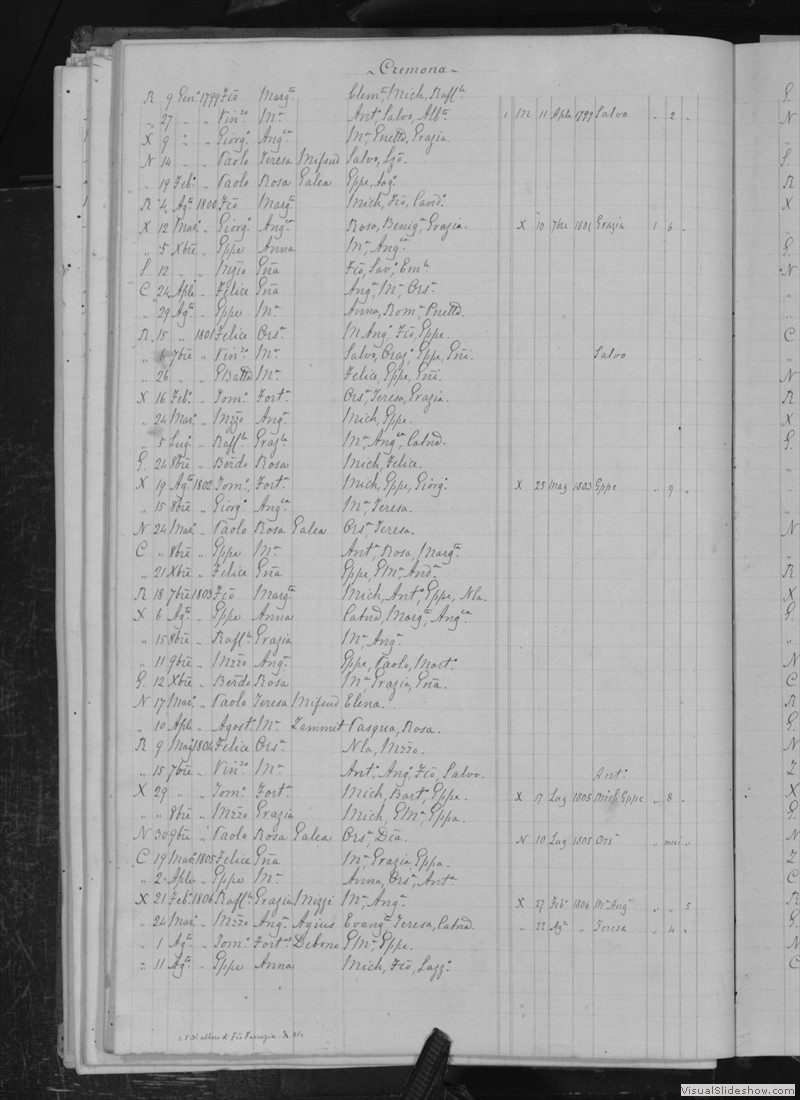 ~Cremona~
R 9 Gen° 1799 Fčo Margta Clemte, Mich, Raffle
„ 27 „ „ Vinzo Ma Anta, Salvo, Albta 1 M 11 Aple 1799 Salvo „ 2 „
X 9 „ „ Giorg° Angca Ma Pnetta, Grazia.
N 14 „ „ Paolo Teresa Mifsud Salvo,
„ 19 Feb° „ Paolo Rosa Galea Gppe, Ang°.
R 4 Agto 1800 Fčo Margta Mich, Fčo, Cand°.
X 12 Mar° „ Giorg° Angca Rosa, Benigo, Grazia. X 10 7bre 1801 Grazia 1 6 „
„ 5 Xbre „ Gppe Anna Ma, Angca
S. 12 „ „ Mzzo Gña Fčo, Sav°, Emle
C 24 Aple „ Felice Gña Anga, Ma, Orsa.
„ 29 Agto „ Gppe Ma Anna, Roma, Pnetta.
R. 15 „ 1801 Felice Orsa M Ang° Fčo, Gppe.
„ 6 7bre „ Vinzo Ma Salvo, Graz°, Gppe, Gni. Salvo
„ 26 „ „ GBatta Ma Felice, Gppe, Gni.
X 16 Feb° „ Tom° Forta Orsa, Teresa, Grazia.
„ 24 Mar° „ Mzzo Anga Mich, Gppe.
„ 5 Lug° „ Raffle Grazla Ma Angca Catnd.
G. 24 8bre „ Berdo Rosa Mich, Felice.
X 19 Agto 1802 Tom° Forta Mich, Gppe, Giorg° X 25 Mag 1803 Gppe „ 9 „
„ 15 8bre „ Giorg° Angca Ma, Teresa.
N 24 Mar° „ Paolo Rosa Galea Orsa, Teresa.
C „ 8bre „ Gppe Ma Anta, Rosa, Margta.
„ 21 Xbre „ Felice Gña Gppe, GMa, Anda.
R 18 7bre 1803 Fčo Margta Mich, Ant°, Gppe, Nla.
X 6 Agto „ Gppe Anna Catnd, Margta, Angca
„ 15 8bre „ Raffle Grazia Ma, Anga.
„ 11 9bre „ Mzzo Anga Gppe, Paolo, Mart°.
G. 12 Xbre „ Berdo Rosa Ma Grazia, Gña.
N 17 Mar° „ Paolo Teresa Mifsud Elena.
„ 10 Aple „ Agosto Ma Zammit Pasqua, Rosa.
R 9 Mar 1804 Felice Orsa Nla, Mzzo.
„ 15 7bre „ Vinzo Ma Ant°, Ang°, Fčo, Salvo. Ant°
X 29 „ „ Tom° Forta Mich, Bart°, Gppe. X 17 Lug 1805 Mich Gppe „ 8 „
„ „ 8bre „ Mzzo Grazia Mich, GMa, Gppa.
N 30 9bre „ Paolo Rosa Galea Orsa, Dča. N 10 Lug 1805 Orsa „ mesi „
C 19 Mar 1805 Felice Gña Ma Grazia Gppa.
„ 2 Aple „ Gppe Ma Anna, Orsa, Anta
X 21 Feb° 1806 Raffle Grazia Mizzi Ma Anga. X 27 Feb° 1806 Ma Anga „ „ 5
„ 24 Mar° „ Mzzo Anga Agius Evanga, Teresa, Catnd. „ 22 Agto „ Teresa „ 4 „
„ 1 Agto „ Tom° Forta Debono GMa, Gppe.
„ 11 Agto „ Gppe Anna Mich, Fčo, Lazz°.
VisualSlideshow.com